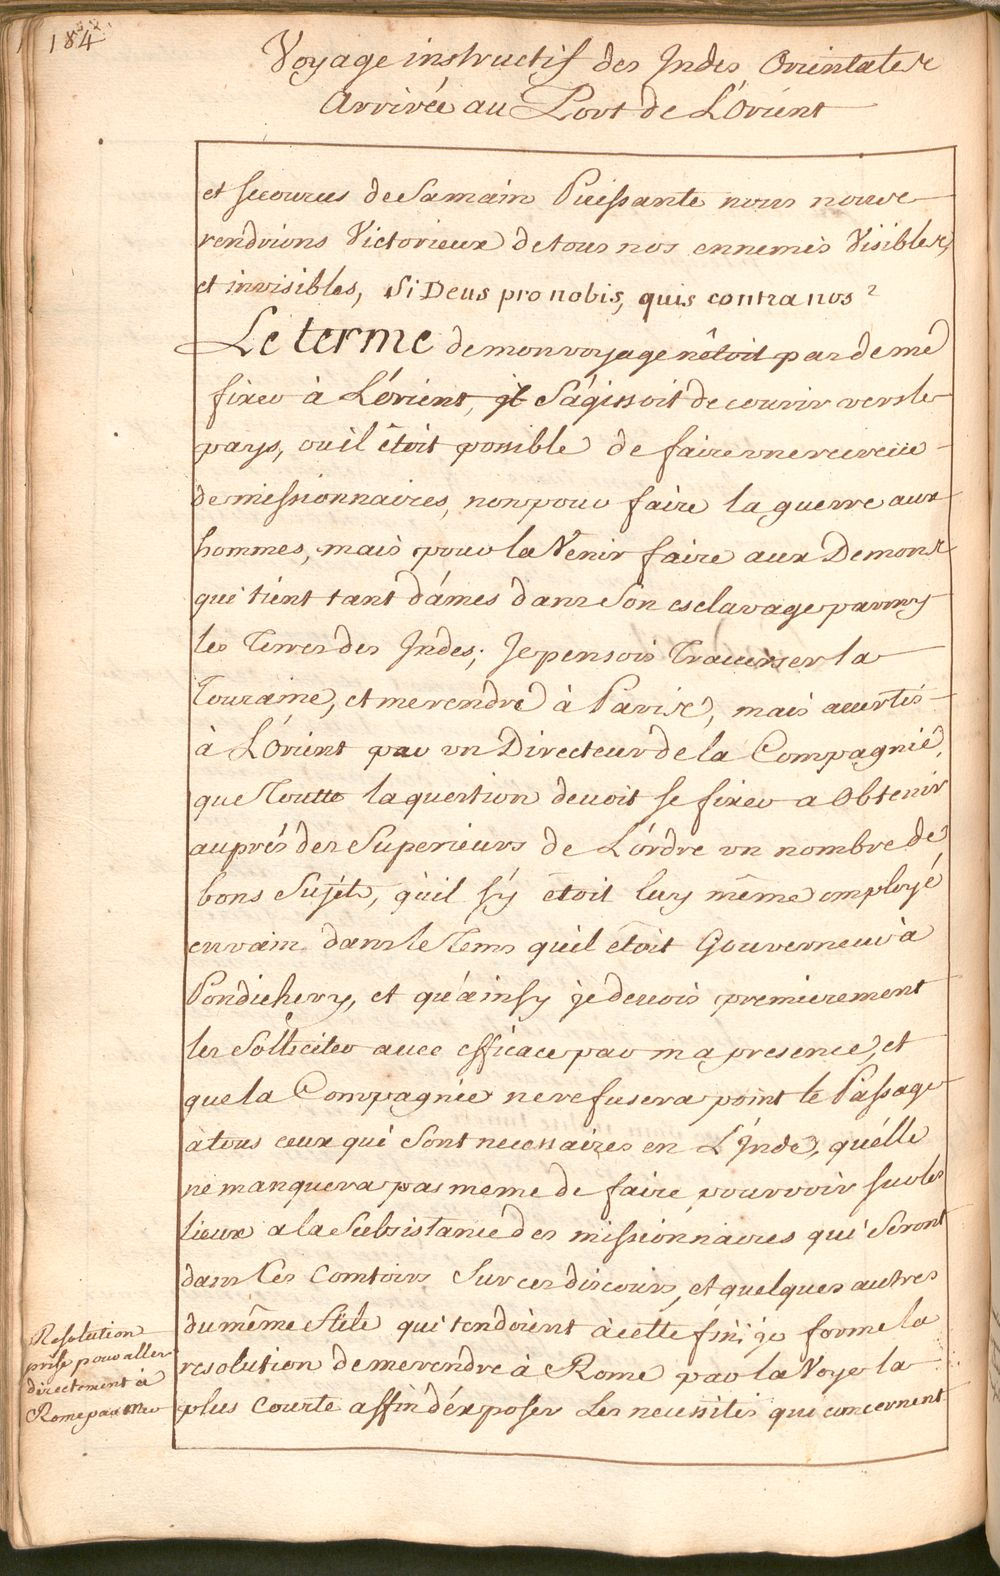 184
Voyage instructif des Indes Orientales
Arrivée au Port de L'Orient
et secours de Sa main Puissante nous nous
rendrions Victorieux de tous nos ennemis Visibles,
et invisibles, Si Deus pro nobis, quis contra nos?
Le terme de mon voyage n'êtoit pas de me
fixer à L'órient, il S'ágissoit de courir vers le
pays, ou il êtoit possible de faire une recreüe
de missionnaires, non pour faire la guerre aux
hommes, mais pour la Venir faire aux Demons
qui tient tant d'ámes dans Son esclavage parmy
les Terres des Indes; Je pensois Traverser la
Touraine, et me rendre à Paris, mais avertis
à L'Orient par un Directeur de la Compagnie,
que Toutte la question devoit se fixer a Obtenir
auprés des Superieurs de L'órdre un nombre de
bons Sujéts, qu'il s'y êtoit luy même employé
en vain dans le Tems qu'il êtoit Gouverneur à
Pondichery, et qu'áinsy je devois premierement
les Solliciter avec efficace par ma presence, et
que la Compagnie ne refusera point le Passage
à tous ceux qui Sont necessaires en L'Inde, qu'élle
ne manquera pas meme de faire pourvoir sur les
lieux a la Subsistance des missionnaires qui Seront
dans Ces Comtoirs Sur ces discours, et quelques autres
du même Stile qui tendoient à cette fin; je forme la
resolution de me rendre à Rome par la Voye la
plus Courte affin d'éxposer Les necessités qui concernent
Resolution
prise pour aller
directement à
Rome par Mer